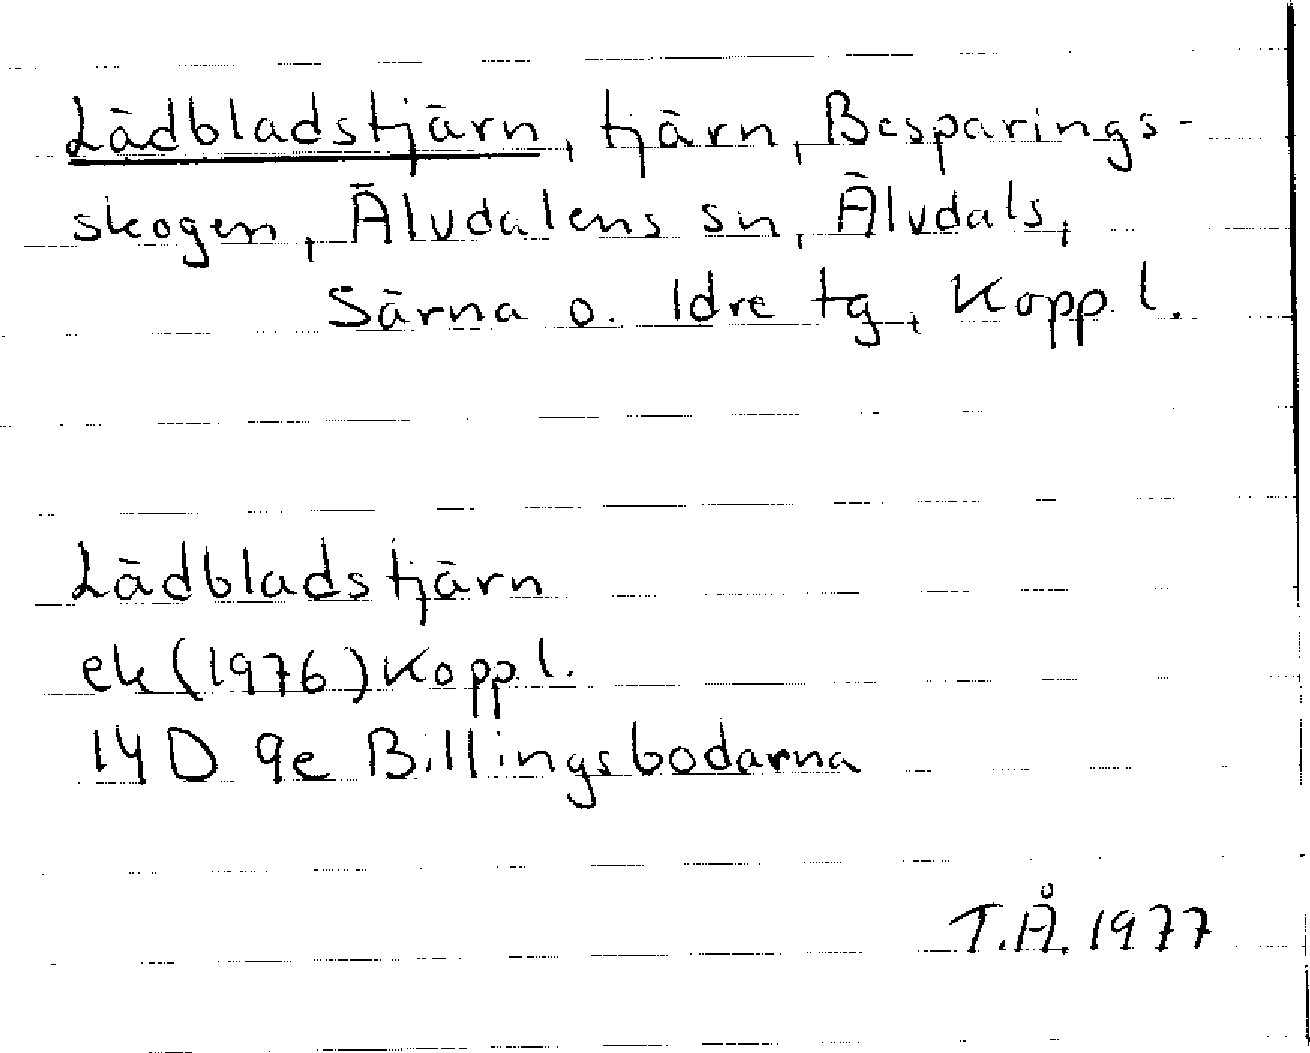 Lädbladstjärn, tjärn, Besparings-
skogen, Älvdalens sn, Älvdals,
Särna o. Idre tg, Kopp. l.
Lädbladstjärn
ek (1976) Kopp. l.
14D 9e Billingsbodarna
T.Å. 1977